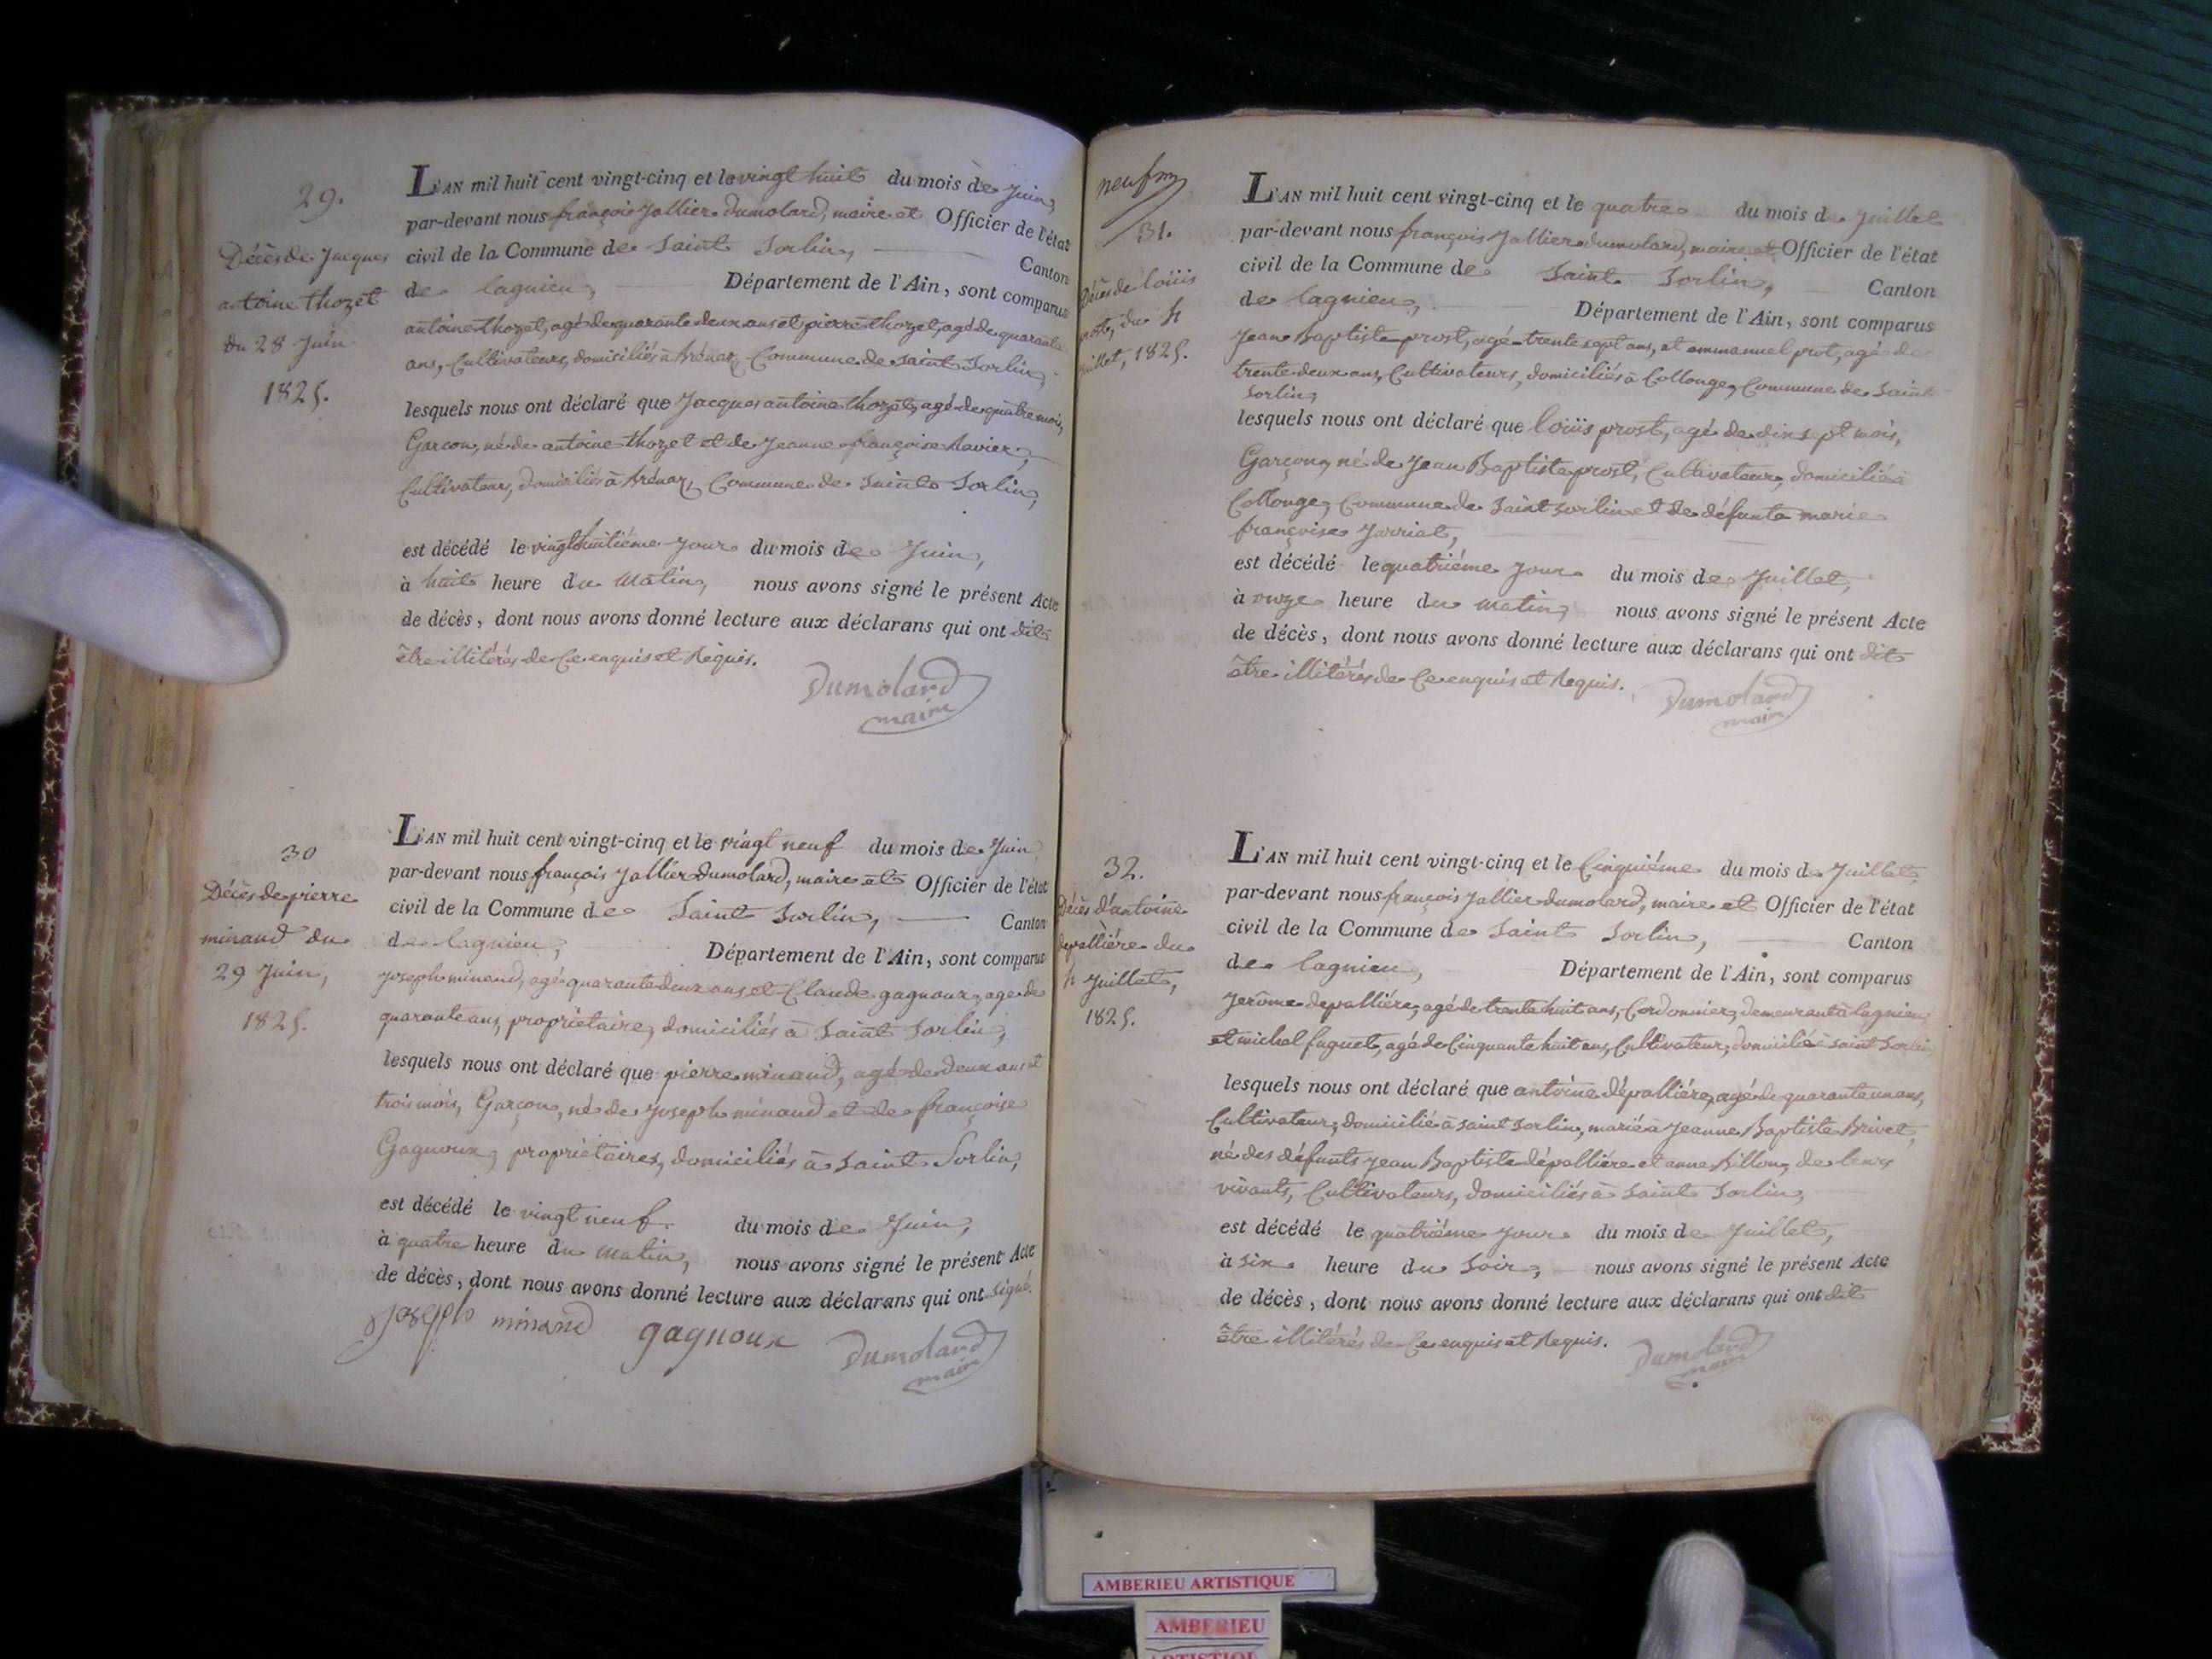 29.
Décès de Jacques
antoine thozet
du 28 Juin
1825.
L'AN mil huit cent vingt-cinq et le vingt huit du mois de Juin,
par-devant nous françois Jallier dumolard, maire et Officier de l'état
civil de la Commune de Saint Sorlin, Canton
de lagnieu, Département de l'Ain, sont comparus
antoine thozet, agé de quarante deux ans et pierre thozet, agé de quarante
ans, Cultivateurs, domiciliés à Brénaz, Commune de Saint Sorlin,
lesquels nous ont déclaré que Jacques antoine thozet, agé de quatre mois,
Garcon, né de antoine thozet et de Jeanne françoise Ravier,
Cultivateurs, domiciliés à Brénaz, Commune de Saint Sorlin,
est décédé le vingt huitiéme jour du mois de Juin,
à huit heure du Matin, nous avons signé le présent Acte
de décès, dont nous avons donné lecture aux déclarans qui ont dit
être illitérés de Ce enquis et Réquis.
Dumolard
maire
30
Décès de pierre
minaud du
29 Juin,
1825.
L'AN mil huit cent vingt-cinq et le vingt neuf du mois de Juin
par-devant nous françois Jallier dumolard, maire et Officier de l'état
civil de la Commune de Saint Sorlin, Canton
de lagnieu, Département de l'Ain, sont comparus
Joseph minaud, agé quarante deux ans et Claude gagnoux, age de
quarante ans, propriétaire, domiciliés à Saint Sorlin,
lesquels nous ont déclaré que pierre minaud, agé de deux ans et
trois mois, Garçon, né de Joseph minaud et de françoise
Gagnoux, propriétaires, domiciliés à Saint Sorlin,
est décédé le vingt neuf. du mois de Juin,
à quatre heure du Matin, nous avons signé le présent Acte
de décès, dont nous avons donné lecture aux déclarans qui ont signé.
Joseph minand gagnoux Dumolard
maire
neuf
31.
Décès de loüis
prost, du 4
Juillet, 1825.
L'AN mil huit cent vingt-cinq et le quatre du mois de Juillet
par-devant nous françois Jallier dumolard, maire et Officier de l'état
civil de la Commune de Saint Sorlin, Canton
de lagnieu, Département de l'Ain, sont comparus
Jean Baptiste prost, agé trente sept ans, et emmanuel prot, agé de
trente deux ans, Cultivateurs, domiciliés à Collonge, Commune de Saint
Sorlin,
lesquels nous ont déclaré que loüis prost, agé de dix sept mois,
Garçon, né de Jean Baptiste prost, Cultivateur, domicilié à
Collonge, Commune de Saint Sorlin et de défunte marie
françoise Jarriat,
est décédé le quatriéme jour du mois de Juillet,
à onze heure du matin, nous avons signé le présent Acte
de décès, dont nous avons donné lecture aux déclarans qui ont dit
être illitérés de Ce enquis et Requis.
Dumolard
maire
32.
Décès d'antoine
depallière du
4 Juillet,
1825.
L'AN mil huit cent vingt-cinq et le Cinquiéme du mois de Juillet
par-devant nous françois Jallier dumolard, maire et Officier de l'état
civil de la Commune de Saint Sorlin, Canton
de lagnieu, Département de l'Ain, sont comparus
Jerôme depallière, agé de trente huit ans, Cordonnier, demeurant à lagnieu
et michel fuguet, agé de Cinquante huit ans, Cultivateur, domicilié à saint Sorlin
lesquels nous ont déclaré que antoine dépallière, agé de quarante un ans,
Cultivateur, domicilié à saint Sorlin, marié à Jeanne Baptiste Brivet,
né des défunts Jean Baptiste dépallière et anne Billon, de leurs
vivants, Cultivateurs, domiciliés à Saint Sorlin,
est décédé le quatriéme jour du mois de Juillet,
à six heure du Soir, nous avons signé le présent Acte
de décès, dont nous avons donné lecture aux déclarans qui ont dit
être illitérés de Ce enquis et Requis.
Dumolard
maire
AMBERIEU ARTISTIQUE
AMBERIEU
ARTISTIQUE